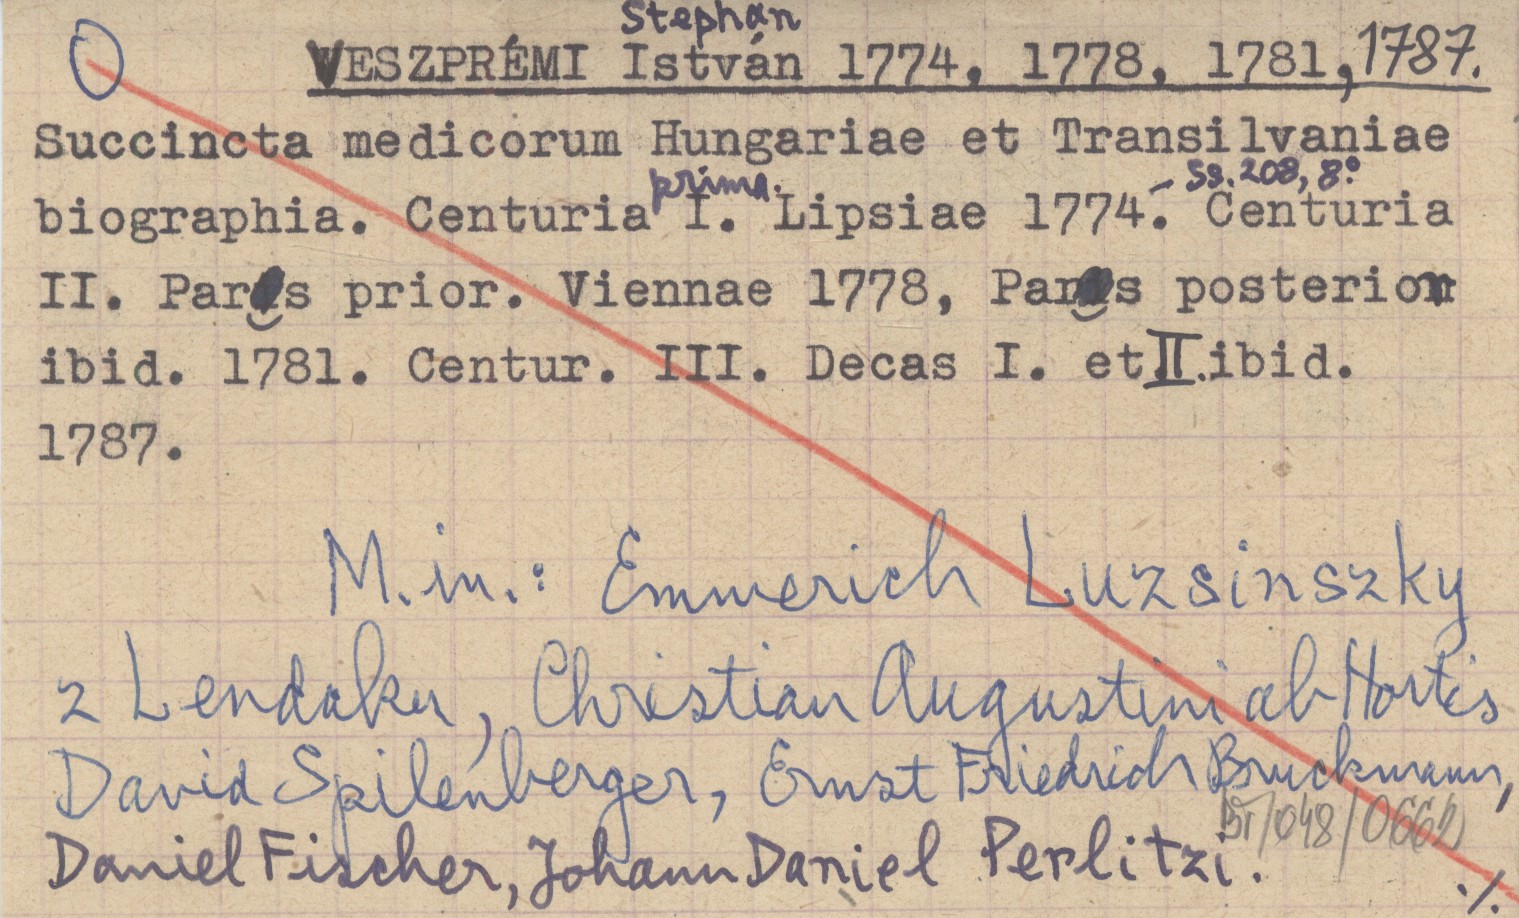 Stephan
VESZPRÉMI István 1774, 1778, 1781, 1787.
Succincta medicorum Hungariae et Transilvaniae
prima. - Ss. 208, 8°.
biographia. Centuria I. Lipsiae 1774. Centuria
II. Pars prior. Viennae 1778, Pars posterior
ibid. 1781. Centur. III. Decas I. et II. ibid.
1787.
M.in.: Emmerich Luzsinszky
z Lendaku, Christian Augustini ab Hortis
David Spilenberger, Ernst Friedrich Bruckmann,
BT/048/0662
Daniel Fischer, Johann Daniel Perlitzi.
./.